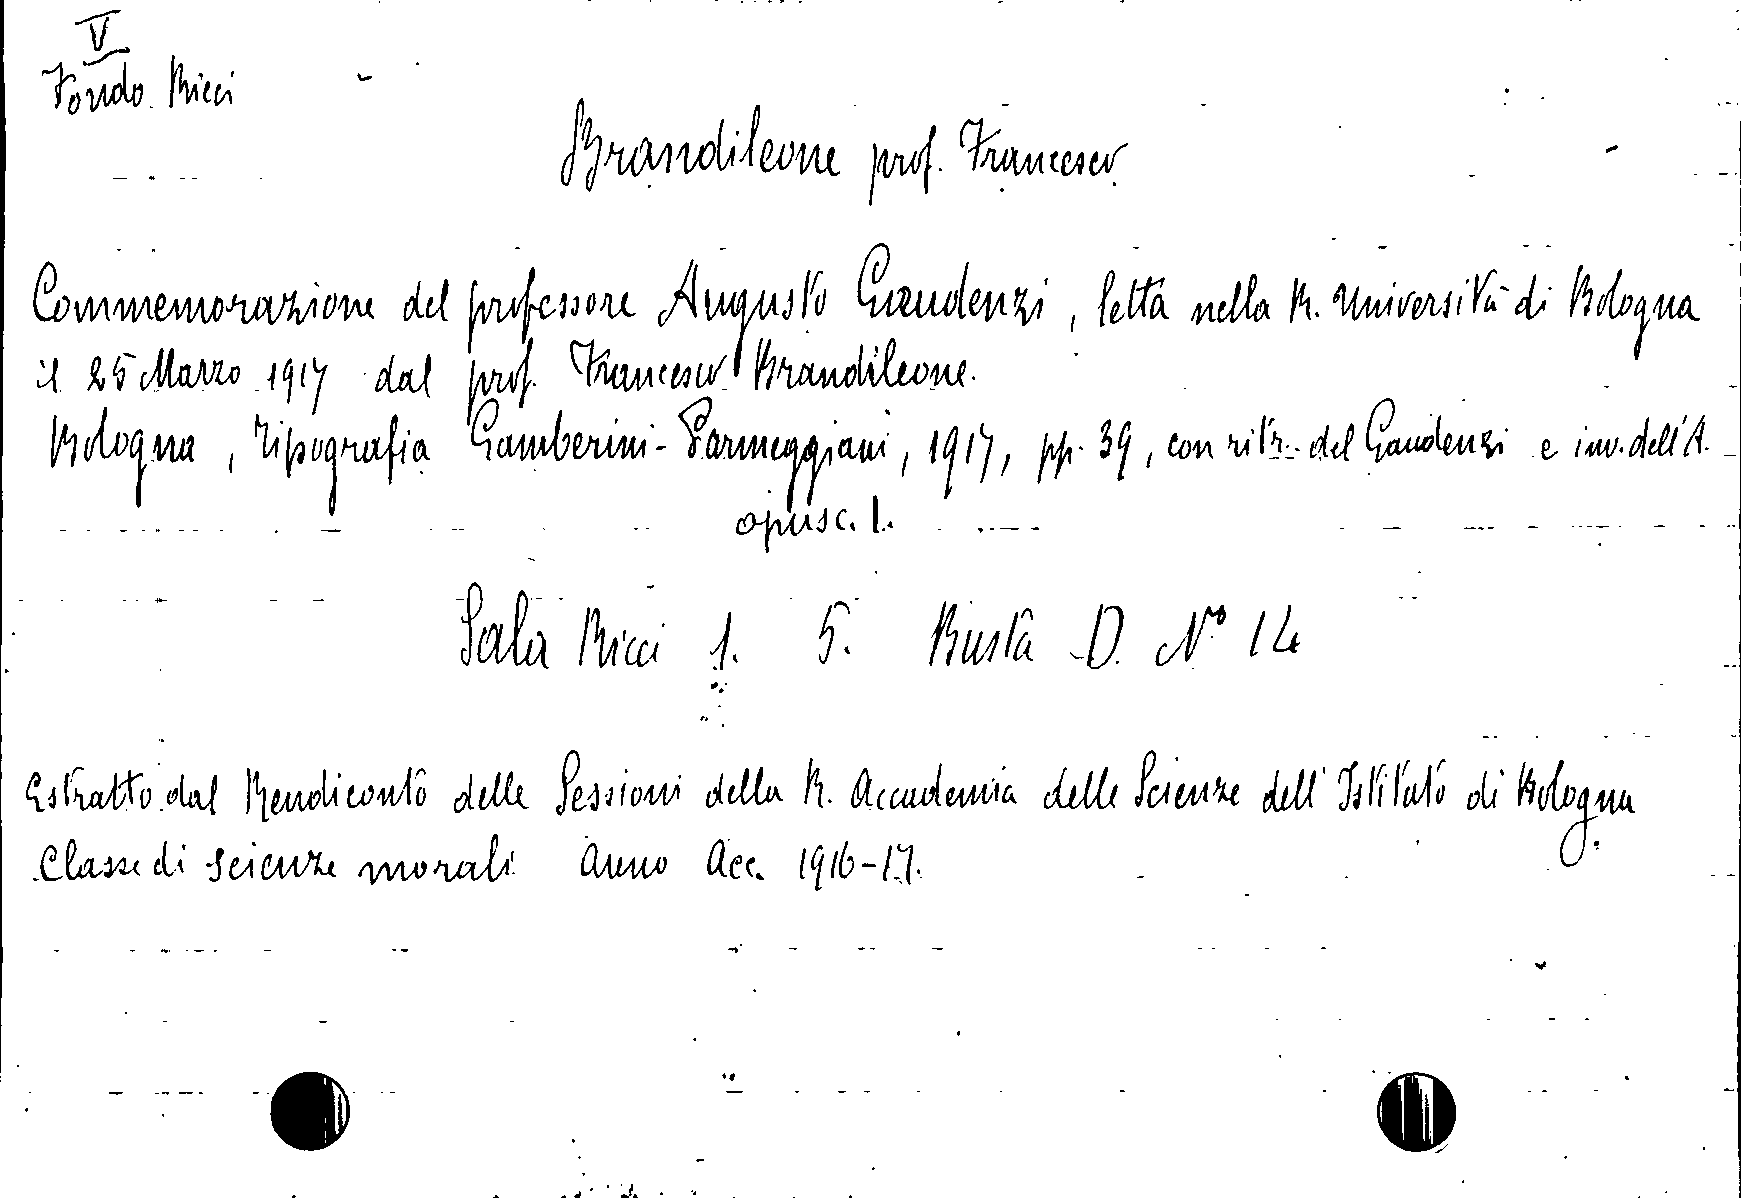 V
Fondo Ricci
Brandileone prof. Francesco
Commemorazione del professore Augusto Gaudenzi, letta nella R. Università di Bologna
il 25 Marzo 1917 dal prof. Francesco Brandileone.
Bologna, Tipografia Gamberini-Parmeggiani, 1917, pp. 39, con ritr. del Gaudenzi e inv. dell'A.
opusc. 1.
Sala Ricci 1. 5. Busta D. N° 14
Estratto dal Rendiconto delle Sessioni della R. Accademia delle Scienze dell'Istituto di Bologna
Classe di scienze morali Anno Acc. 1916-17.